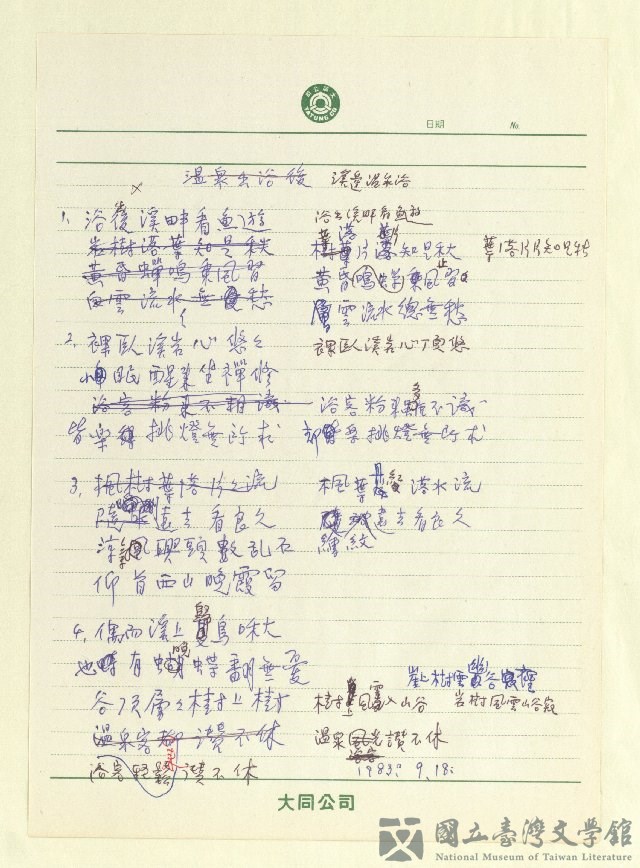 大同公司
TATUNG CO.
日期
No
溫泉出浴後 溪邊溫泉浴
1. 浴後溪畔看魚遊 浴出溪畔看魚遊
岩樹落葉知是秋 樹葉片落知是秋 葉落片片知是秋
黃昏蟬鳴乘風習 黃昏鳴蟬乘風習
白雲流水無憂愁 層雲流水總無愁
2. 裸臥溪岩心悠悠 裸臥溪岩心更悠
小眠醒來坐禪修
浴客粉來不相識 浴客粉來多不識
皆樂得挑燈無所求 挑燈無所求
3. 楓樹葉落片片流 楓葉丹紅落水流
隨遠去看良久 遠去看良久
涼風聚頭數亂石 細紋
仰首西山晚霞留
4. 偶而溪上雙鳥咊大
也有蝴蝶翻無憂
谷頂層層樹上樹 樹上風雲入山谷 岩樹風雲山谷寂
溫泉客都讚不休 溫泉風光讚不休
浴客輕鬆讚不休 1983. 9.18.
大同公司
國立臺灣文學館
National Museum of Taiwan Literature